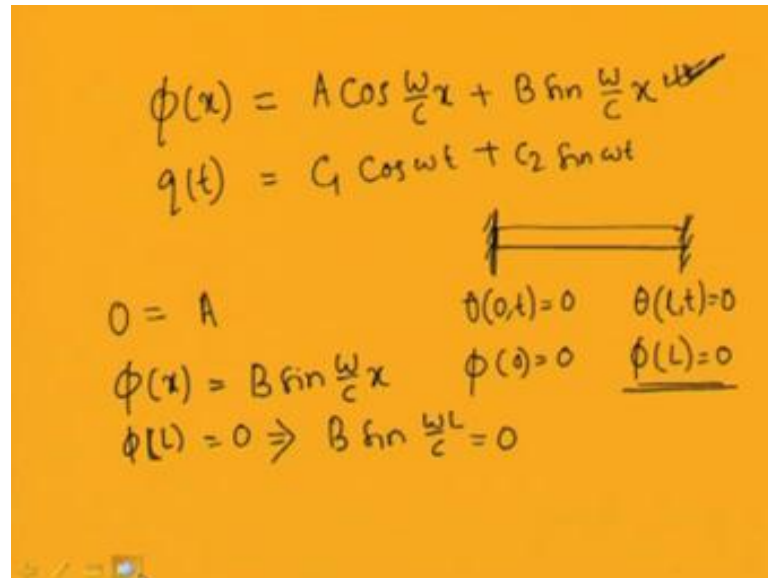 ϕ(x) = A Cos ω/c x + B Sin ω/c x
q(t) = C₁ Cos ωt + C₂ Sin ωt
θ(0,t)=0 θ(l,t)=0
0 = A
ϕ(0)=0 ϕ(L)=0
ϕ(x) = B Sin ω/c x
ϕ(L) = 0 ⇒ B Sin ωL/c = 0